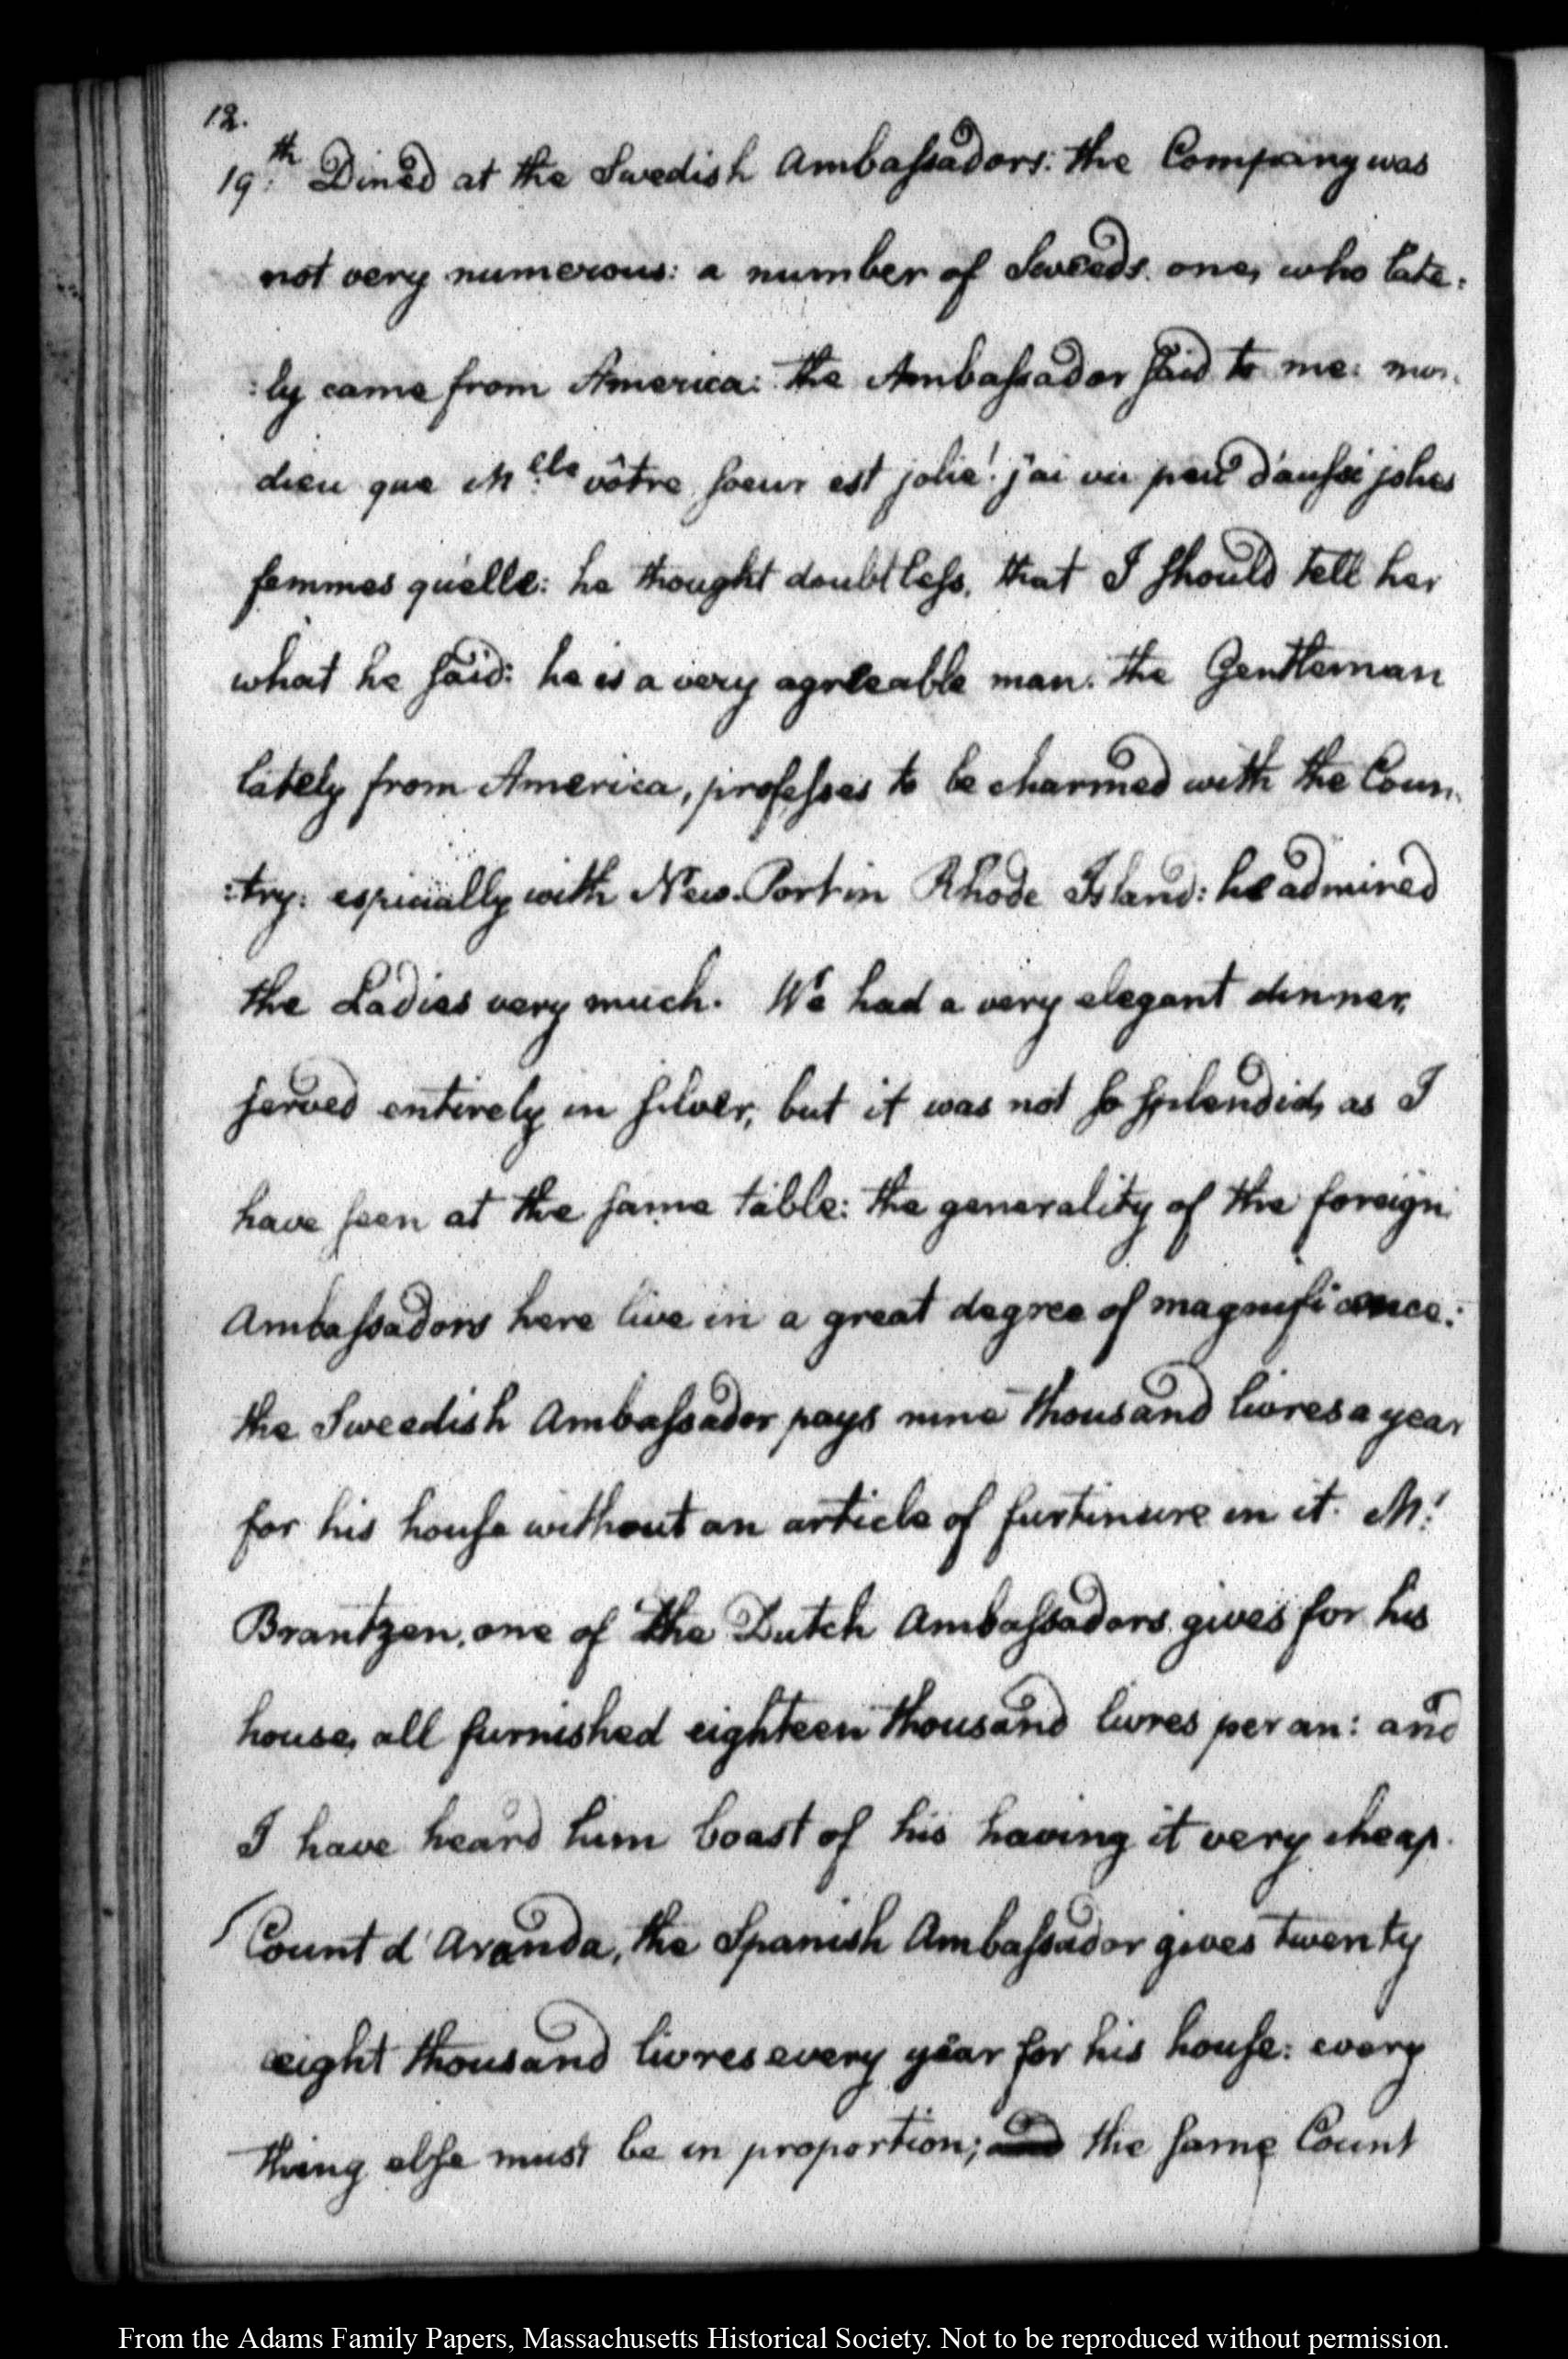 12.
19.th Dined at the Swedish Ambassadors: the Company was
not very numerous: a number of Sweeds. one, who late:
:ly came from America: the Ambassador said to me: mon
dieu que M.elle vôtre soeur est jolie! j'ai vu peu d'aussi jolies
femmes qu'elle: he thought doubtless, that I should tell her
what he said: he is a very agreeable man. the Gentleman
lately from America, professes to be charmed with the Coun:
:try: especially with New-Port in Rhode Island: he admired
the Ladies very much. We had a very elegant dinner,
served entirely in silver, but it was not so splendid, as I
have seen at the same table: the generality of the foreign
Ambassadors here live in a great degree of magnificence:
the Sweedish Ambassador pays nine thousand livres a year
for his house without an article of furtinure in it. M.r
Brantzen, one of the Dutch Ambassadors gives for his
house, all furnished eighteen thousand livres per an: and
I have heard him boast of his having it very cheap.
Count d'Aranda, the Spanish Ambassador gives twenty
eight thousand livres every year for his house: every
thing else must be in proportion; and the same Count
From the Adams Family Papers, Massachusetts Historical Society. Not to be reproduced without permission.